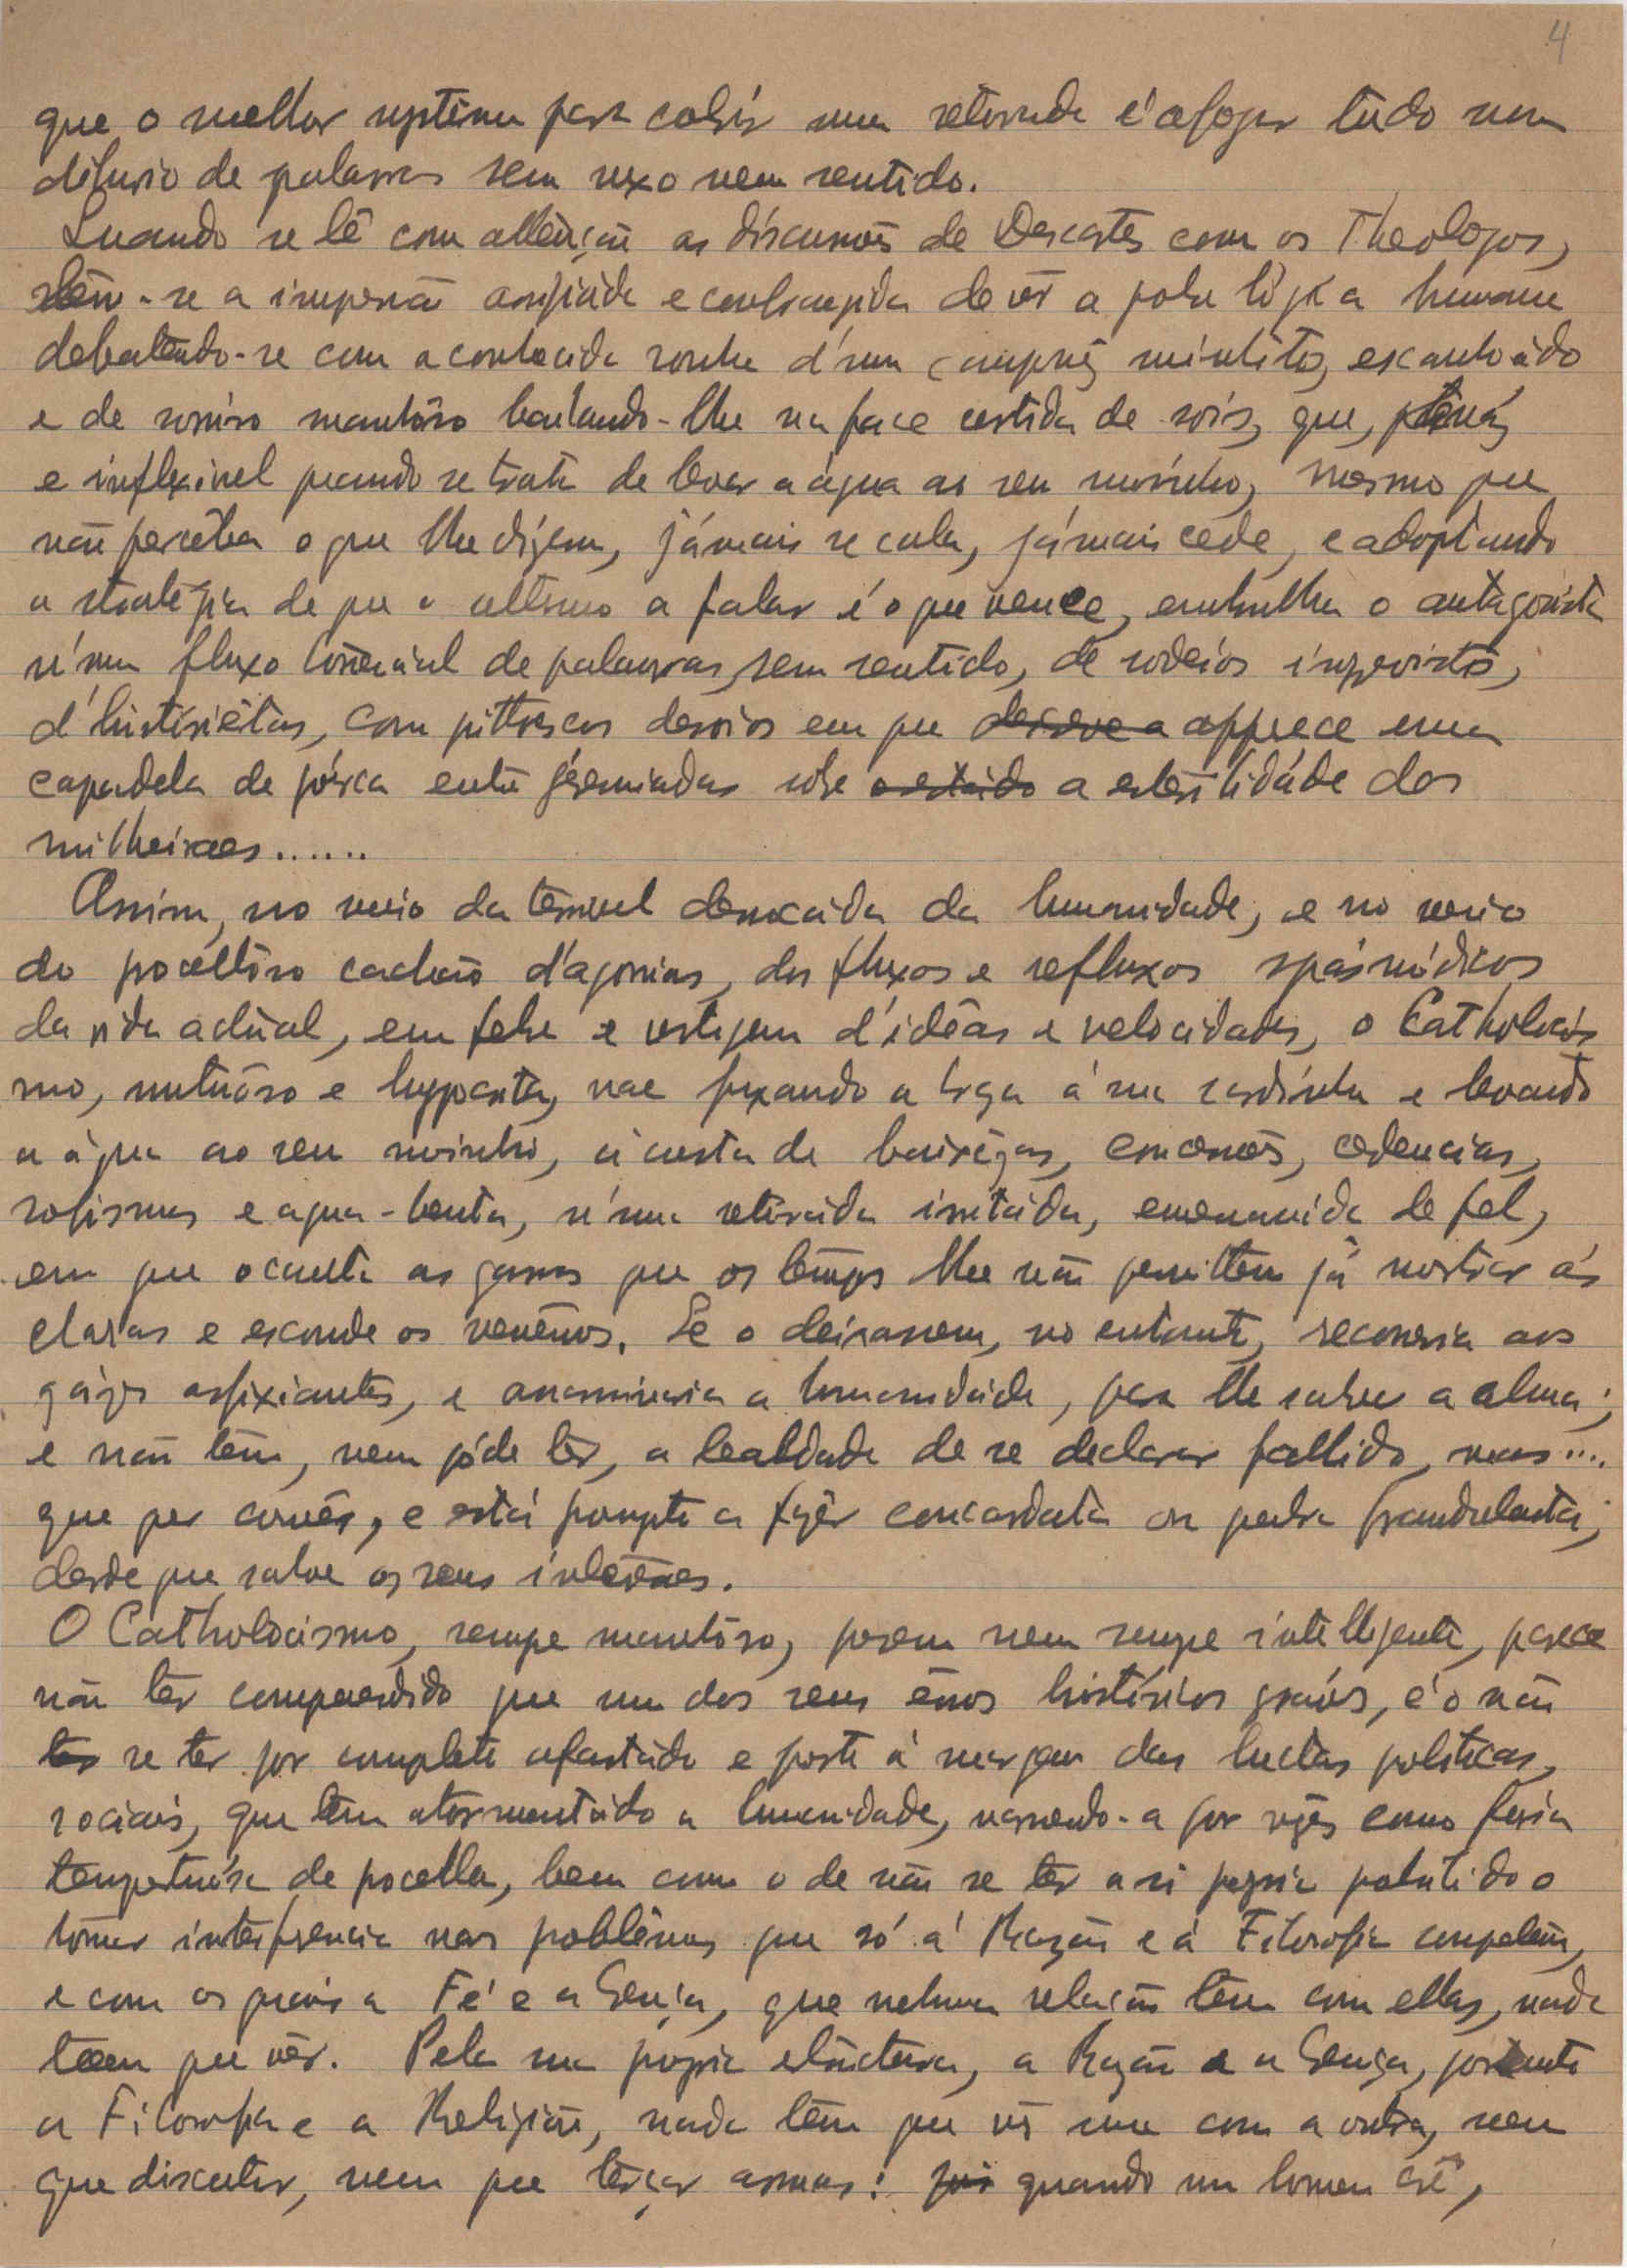 4
que o melhor systema para cobrir uma retirada é afogar tudo num
diluvio de palavras sem nexo nem sentido.
Quando se lê com attenção as discussões de Descartes com os Theologos,
têm-se a impressão angustiada e confrangida de vêr a pobre lógica humana
debatendo-se com a conhecida ronha d'um camponês minhôto, escanhoádo
e de sorriso manhôso bailando-lhe na face curtida de sóis, que, tenáz
e inflexivel quando se trata de levar a água ao seu moínho, mesmo que
não percêba o que lhe dizem, jámais se cala, jámais cede, e adoptando
a strategia de que o ultimo a falar é o que vence, embrulha o antagonista
n'um fluxo torrencial de palavras, sem sentido, de rodeios imprevistos,
d'historiêtas, com pittorescos desvios em que apparece uma
capadela de pórca entre jeremiadas sobre a esterilidáde dos
milheiraes......
Assim, no meio da terrivel derrocáda da humanidade, e no meio
do procellôso cachão d'agonias, dos fluxos e refluxos spásmódicos
da vida actual, em febre e vertigem d'idêas e velocidades, o Catholicis
mo, untuôso e hypocrita, vae puxando a braza á sua sardinha e levando
a água ao seu moinho, á custa de baixêzas, concessões, cedencias,
sofismas e agua-benta, n'uma retirada irritáda, envenenáda de fel,
em que occulta as garras que os tempos lhe não permittem já mostrar ás
claras e esconde os venênos. Se o deixassem, no entanto, recorreria aos
gázes asfixiantes, e assassinaria a humanidáde, para lhe salvar a alma;
e não têm, nem póde têr, a lealdade de se declarar fallido, mas....
que per corrêr, e está prompto a fazêr concordata ou quebra fraudulenta,
desde que salve os seus interêsses.
O Catholocismo, sempre manhôso, porem nem sempre intelligente, parece
não têr comprehendido que um dos seus êrros históricos gráves, é o não
se ter por completo afastado e posto á margem das luctas politicas,
sociais, que têm atormentádo a humanidade, varrendo-a por vezes como furia
tempestuósa de procella, bem como o de não se têr a si proprio prohibido o
tomar interferencia nos problêmas que só á Razão e á Filosofia competem,
e com os quais a Fé e a Crença, que nenhuma relação têm com ellas, nada
têem que vêr. Pela sua propria estructura, a Razão e a Crença, portanto
a Filosofia e a Religião, nada têm que vêr uma com a outra, nem
que discutir, nem que terçar armas: quando um homem crê,